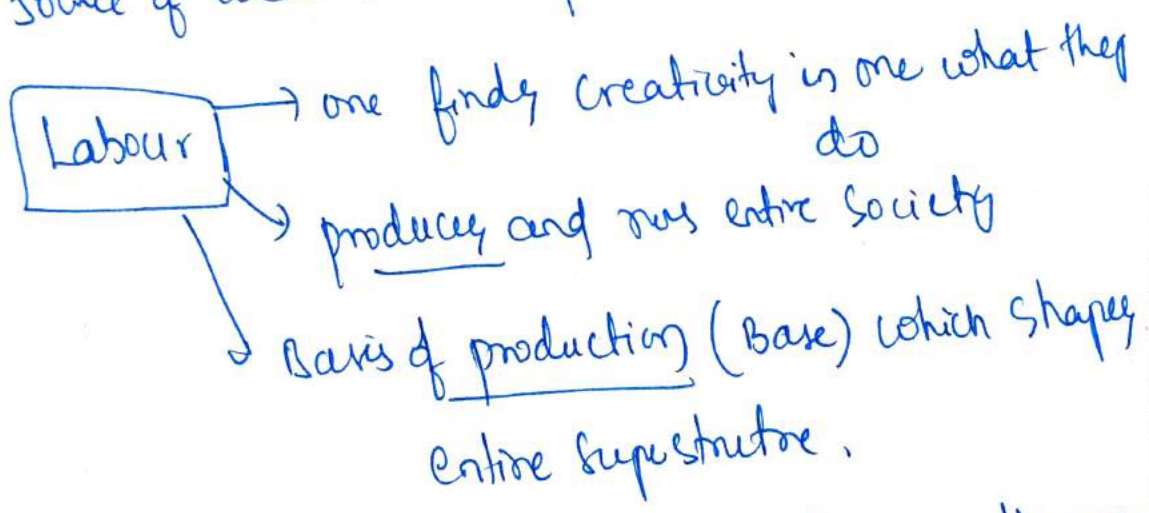 source of
Labour → one finds creativity in one what they
do
→ produces and runs entire society
→ Basis of production (Base) which shapes
entire supestrutre.